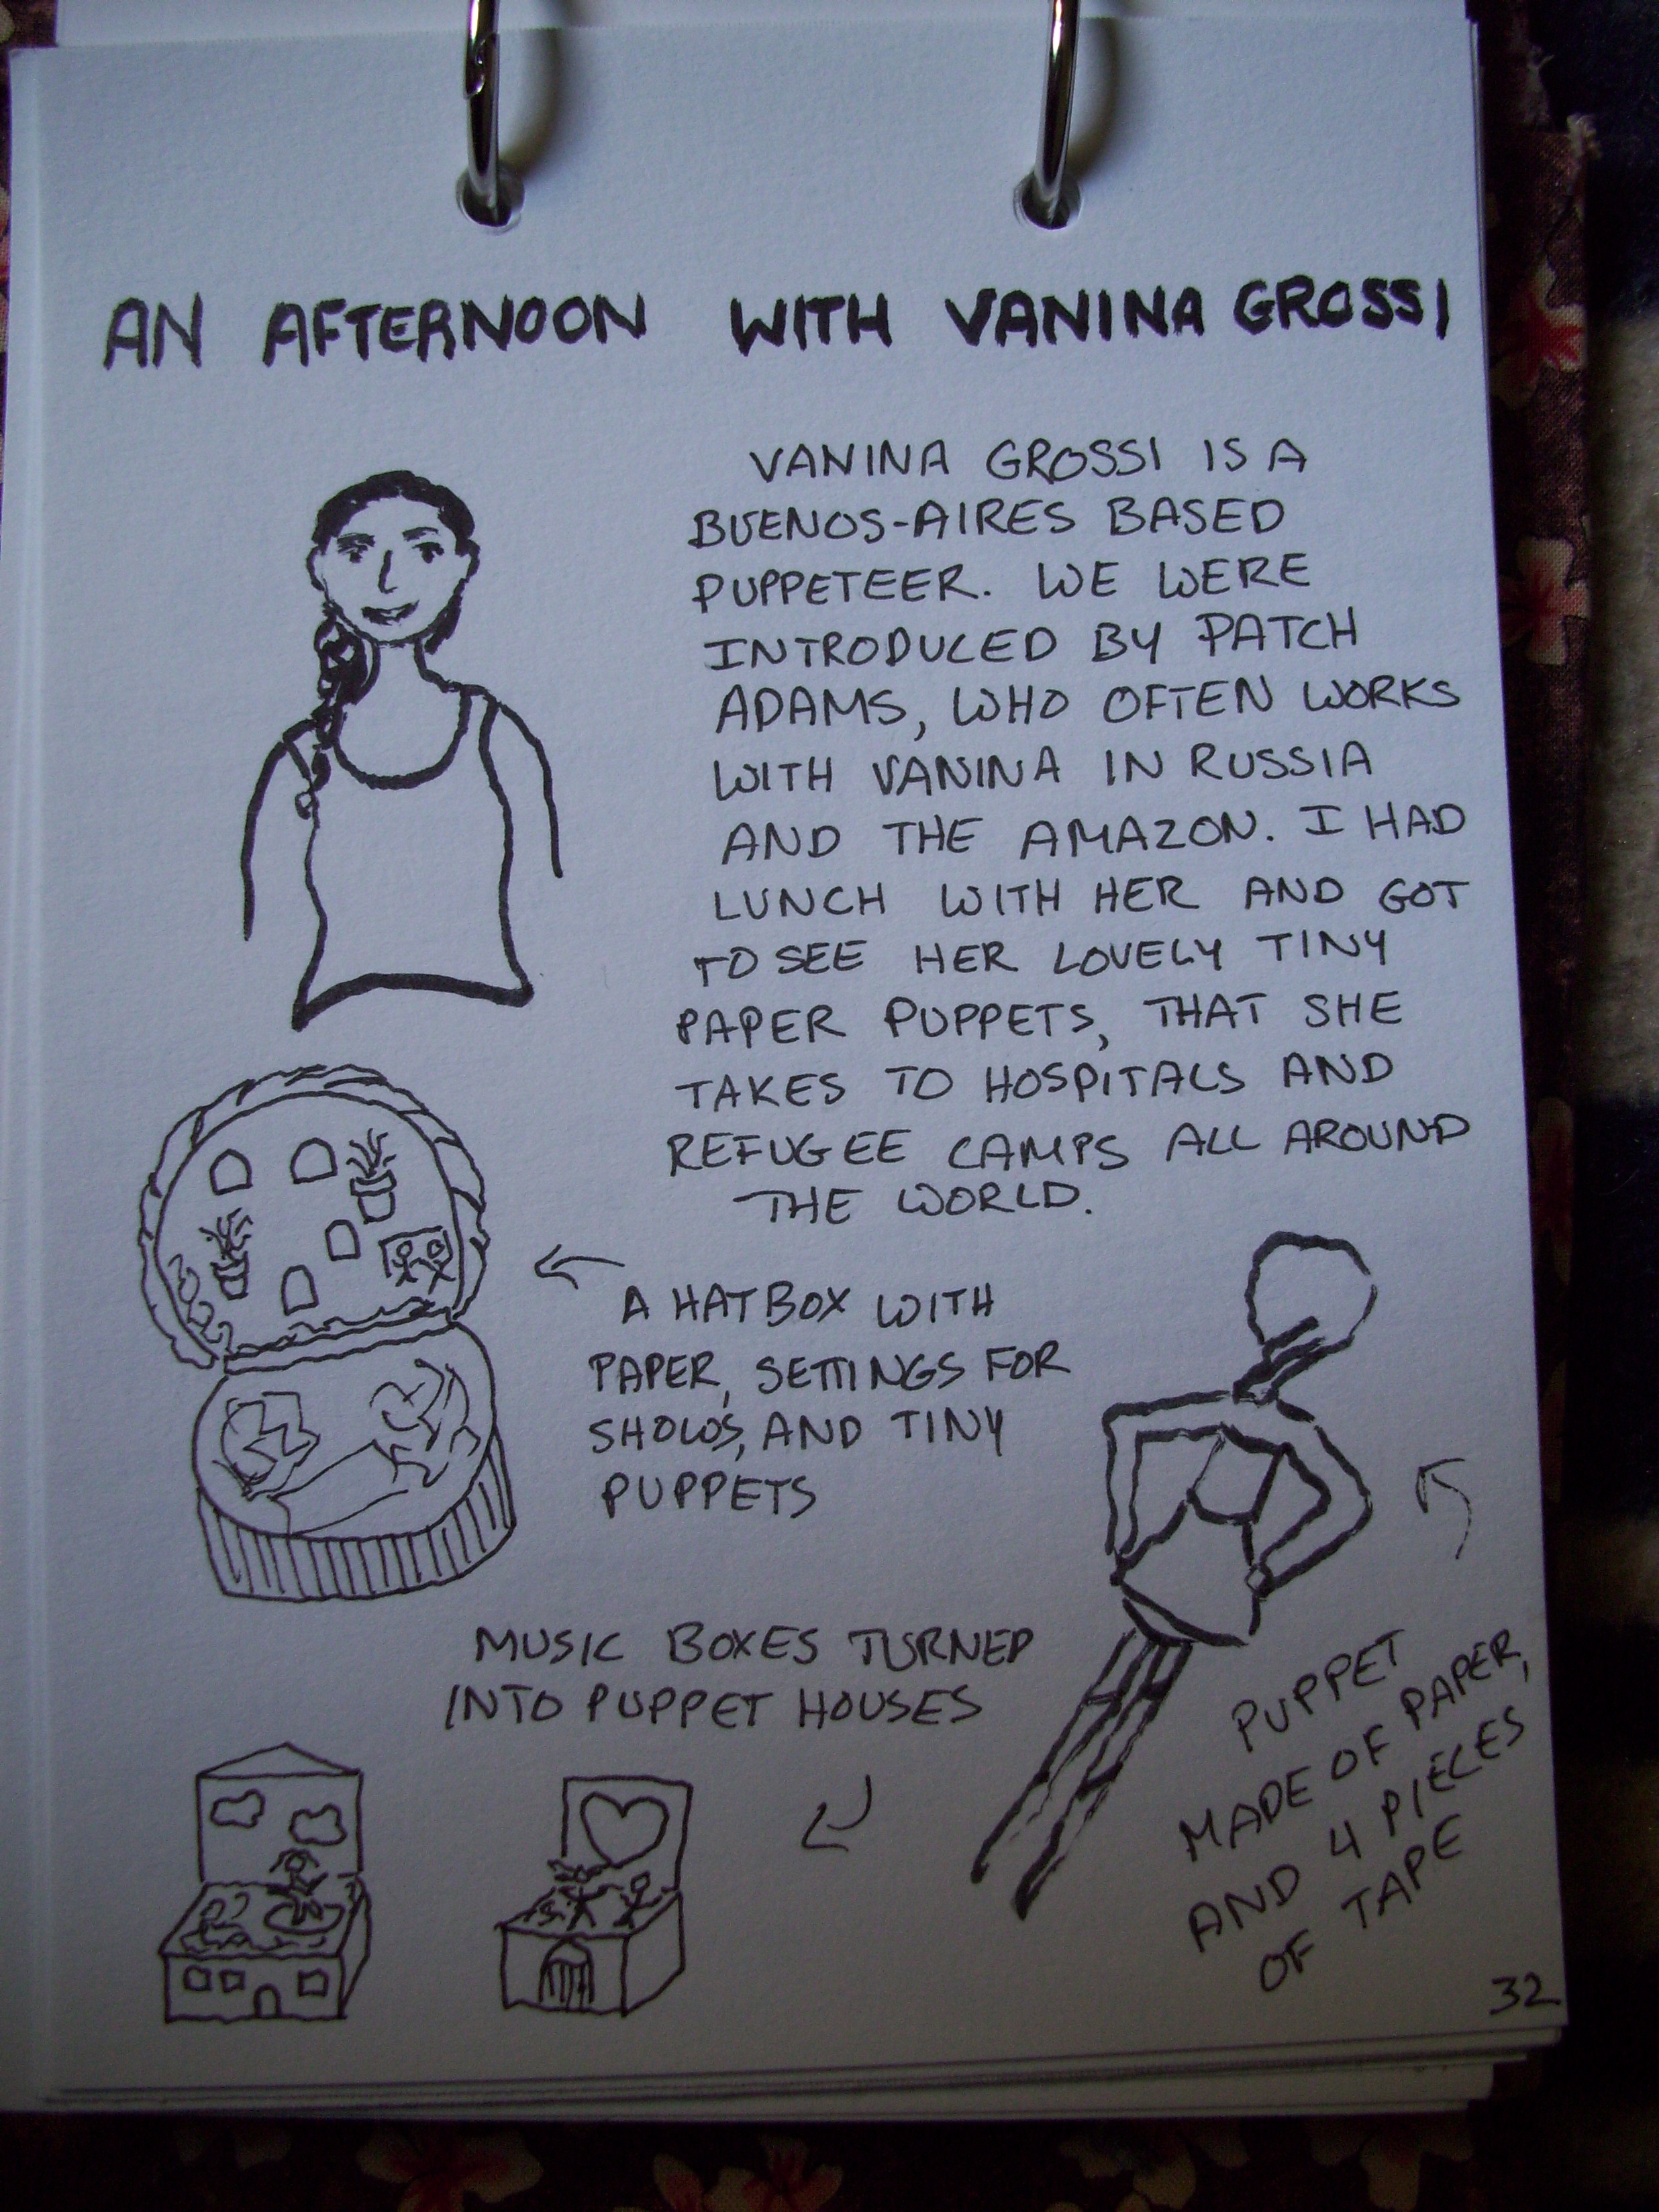 AN AFTERNOON WITH VANINA GROSSI
VANINA GROSSI IS A
BUENOS-AIRES BASED
PUPPETEER. WE WERE
INTRODUCED BY PATCH
ADAMS, WHO OFTEN WORKS
WITH VANINA IN RUSSIA
AND THE AMAZON. I HAD
LUNCH WITH HER AND GOT
TO SEE HER LOVELY TINY
PAPER PUPPETS, THAT SHE
TAKES TO HOSPITALS AND
REFUGEE CAMPS ALL AROUND
THE WORLD.
A HATBOX WITH
PAPER, SETTINGS FOR
SHOWS, AND TINY
PUPPETS
MUSIC BOXES TURNED
INTO PUPPET HOUSES
PUPPET
MADE OF PAPER,
AND 4 PIECES
OF TAPE
32